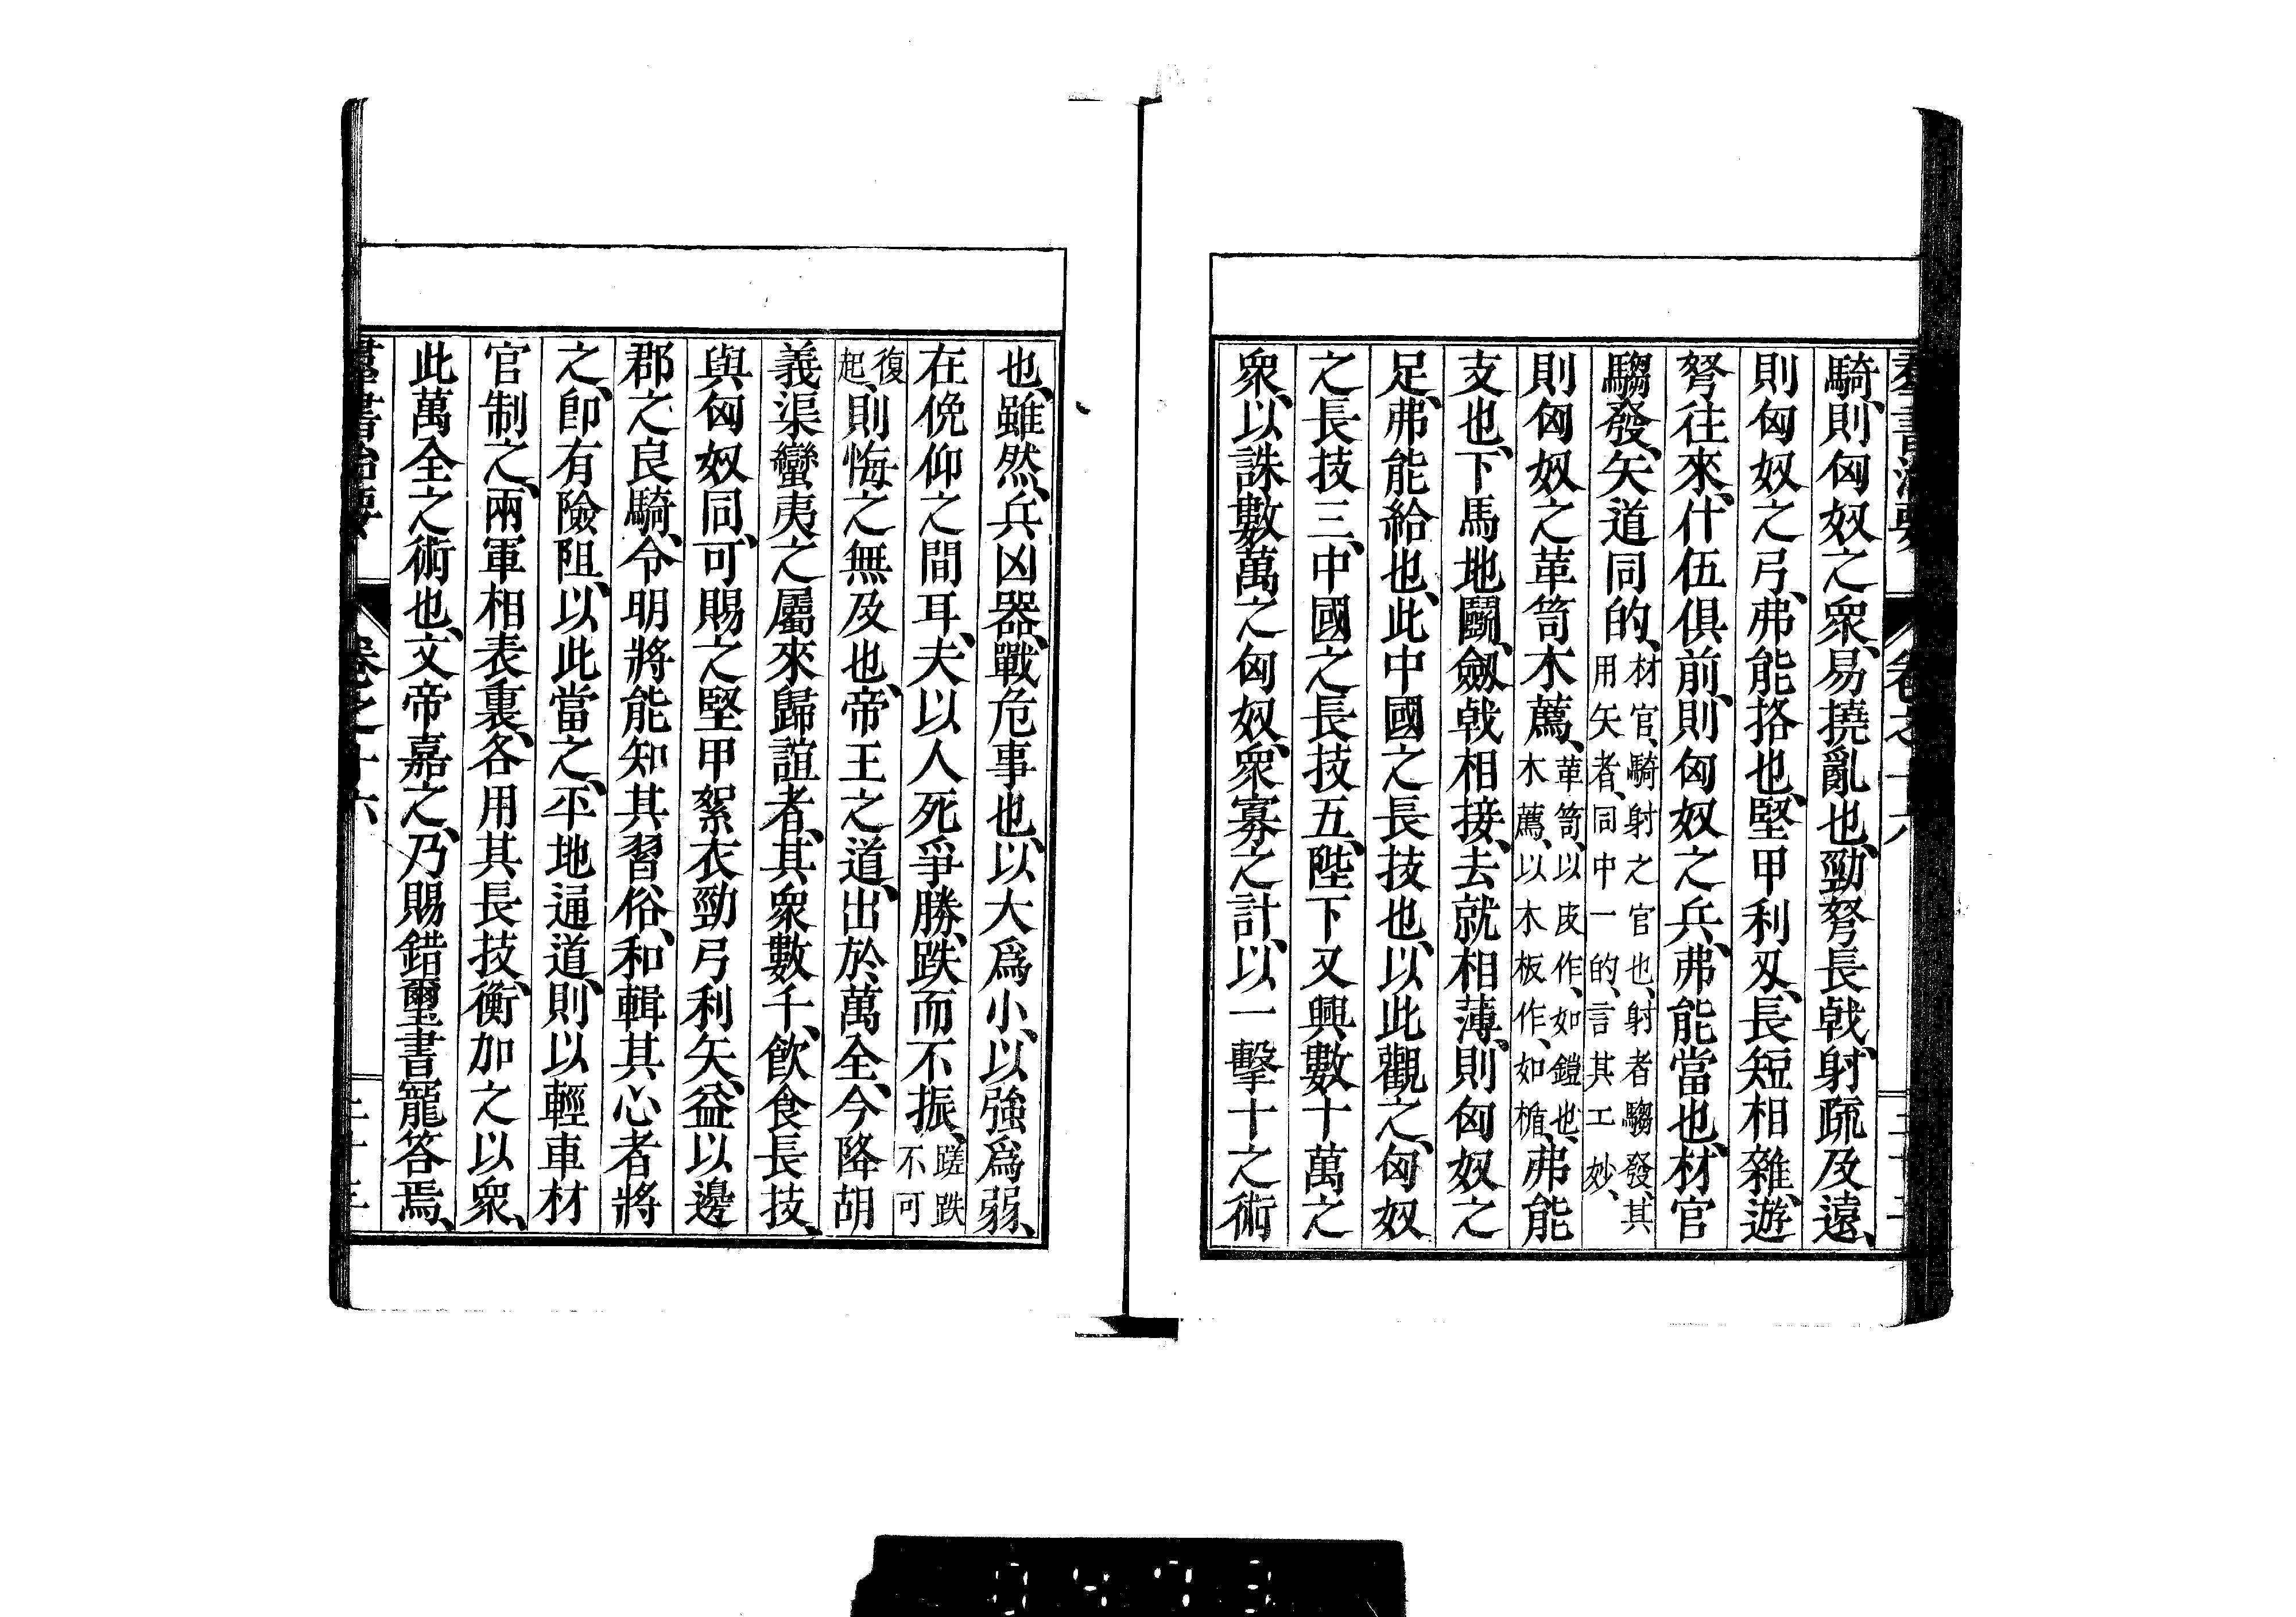 羣書治要 卷之十六
騎、則匈奴之衆、易撓亂也、勁弩長戟、射疏及遠、
則匈奴之弓、弗能挌也、堅甲利刄、長短相雜、遊
弩往來、什伍俱前、則匈奴之兵、弗能當也、材官
騶發、矢道同的、材官、騎射之官也、射者騶發、其用矢者、同中一的、言其工妙、
則匈奴之革笥木薦、革笥、以皮作、如鎧也、木薦、以木板作、如楯、弗能
支也、下馬地鬭、劔戟相接、去就相薄、則匈奴之
足、弗能給也、此中國之長技也、以此觀之、匈奴
之長技三、中國之長技五、陛下又興數十萬之
衆、以誅數萬之匈奴、衆寡之計、以一擊十之術
也、雖然、兵凶器、戰危事也、以大爲小、以強爲弱、
在俛仰之間耳、夫以人死爭勝、跌而不振、蹉跌不可
復起、則悔之無及也、帝王之道、出於萬全、今降胡
義渠蠻夷之屬來歸誼者、其衆數千、飲食長技、
與匈奴同、可賜之堅甲絮衣勁弓利矢、益以邊
郡之良騎、令明將能知其習俗、和輯其心者將
之、卽有險阻、以此當之、平地通道、則以輕車材
官制之、兩軍相表裏、各用其長技、衡加之以衆、
此萬全之術也、文帝嘉之、乃賜錯璽書寵答焉、
羣書治要 卷之十六